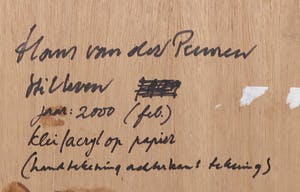 Hans van der Pennen
Stilleven
jaar: 2000 (feb.)
klei/acryl op papier
(handtekening achterkant tekening)